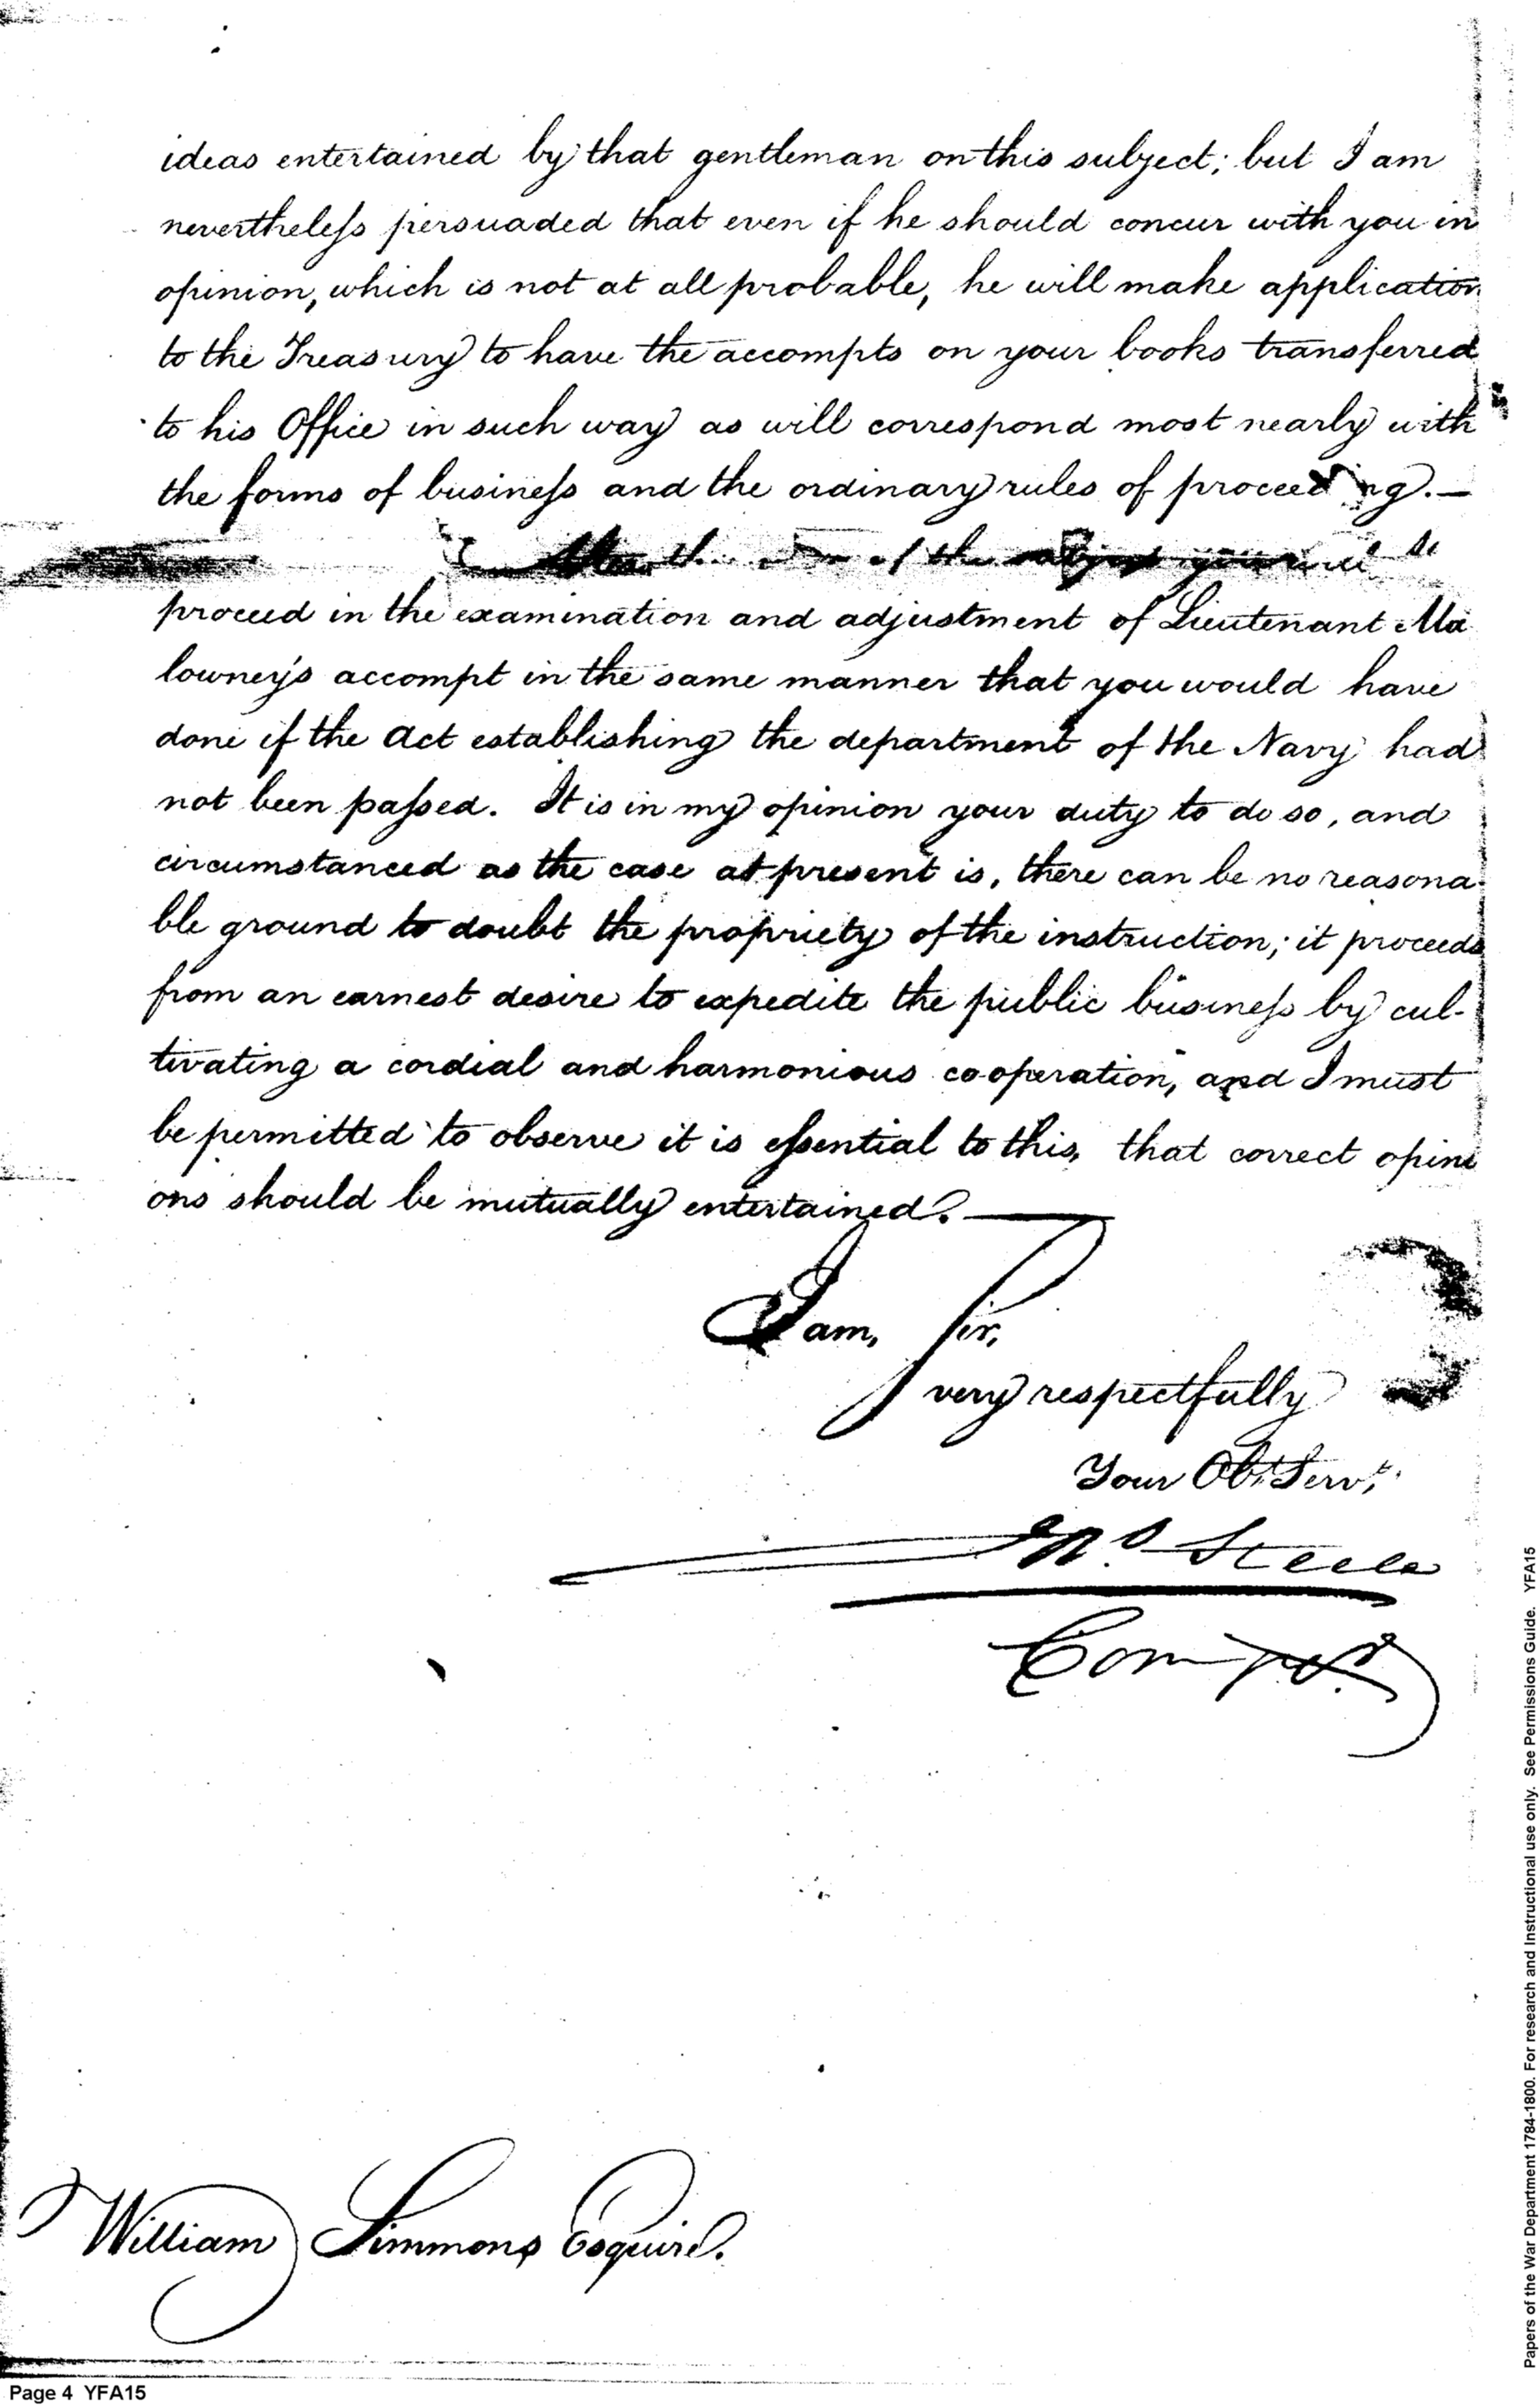 ideas entertained by that gentleman on this subject; but I am
nevertheless persuaded that even if he should concur with you in
opinion, which is not at all probable, he will make application
to the Treasury to have the accompts on your books transferred
to his Office in such way as will correspond most nearly with
the forms of business and the ordinary rules of proceeding.—
of the subject you will
proceed in the examination and adjustment of Lieutenant Ma
lowney's accompt in the same manner that you would have
done if the Act establishing the department of the Navy had
not been passed. It is in my opinion your duty to do so, and
circumstanced as the case at present is, there can be no reasona-
ble ground to doubt the propriety of the instruction; it proceeds
from an earnest desire to expedite the public business by cul-
tivating a cordial and harmonious cooperation, and I must
be permitted to observe it is essential to this, that correct opini
ons should be mutually entertained.—
I am, Sir,
very respectfully
Your Obt. Servt.
Jno. Steele
Compr.
William Simmons Esquire.
Page 4 YFA15
Papers of the War Department 1784-1800. For research and Instructional use only. See Permissions Guide. YFA15